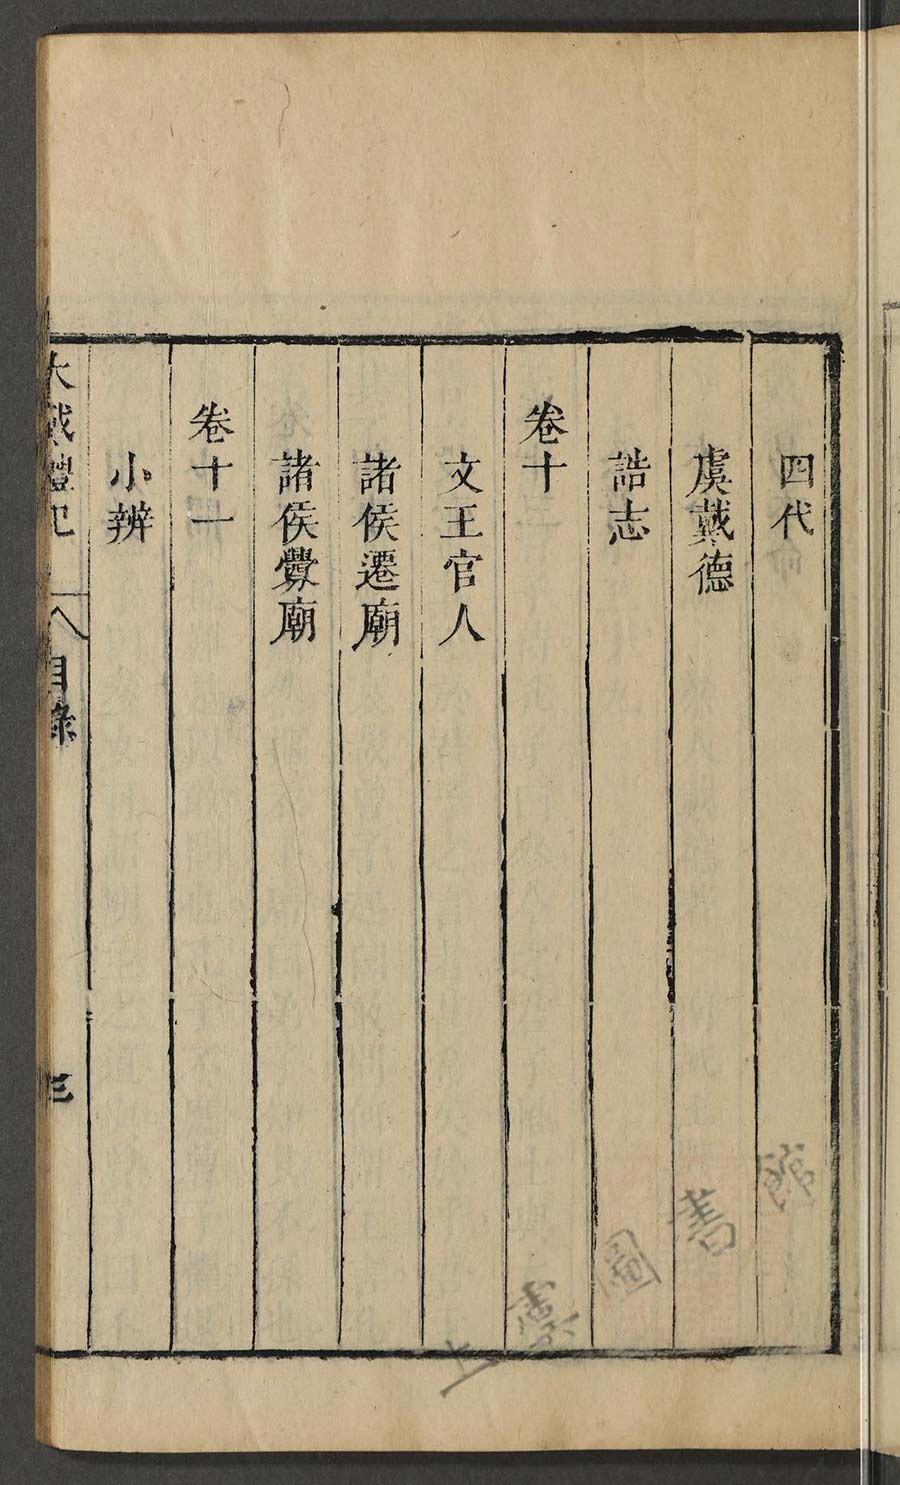 四代
虞戴德
誥志
卷十
文王官人
諸侯遷廟
諸侯釁廟
卷十一
小辨
大戴禮記
目錄
三
圖書館